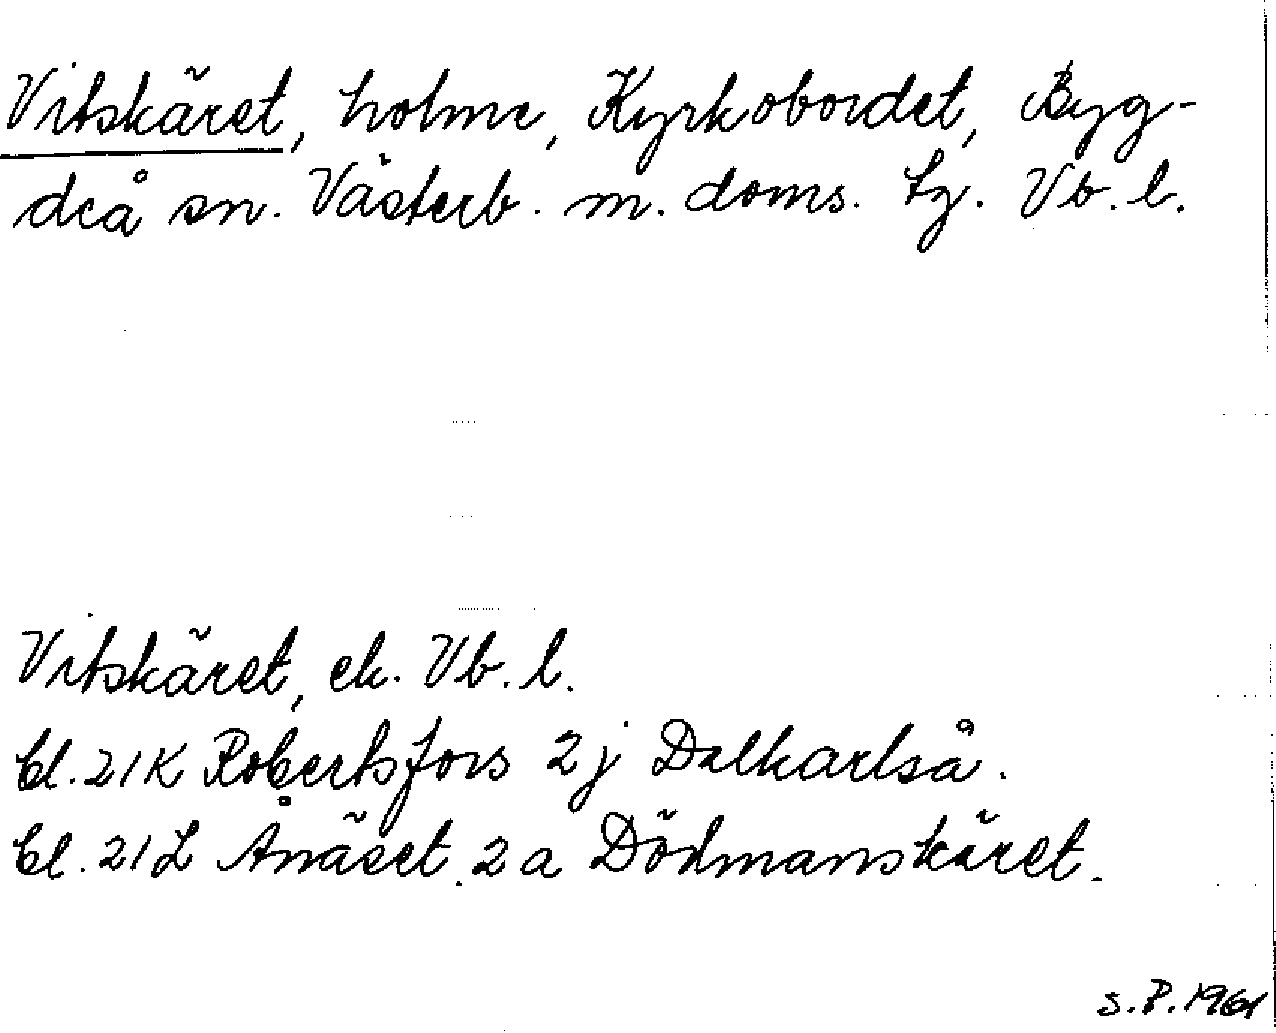 Vitskäret, holme, Kyrkobordet, Byg-
deå sn. Västerb. m. doms. tg. Vb. l.
Vitskäret, ek. Vb. l.
bl. 21K Robertsfors 2j Dalkarlså.
bl. 21L Ånäset 2a Dödmanskäret.
S.P. 1961